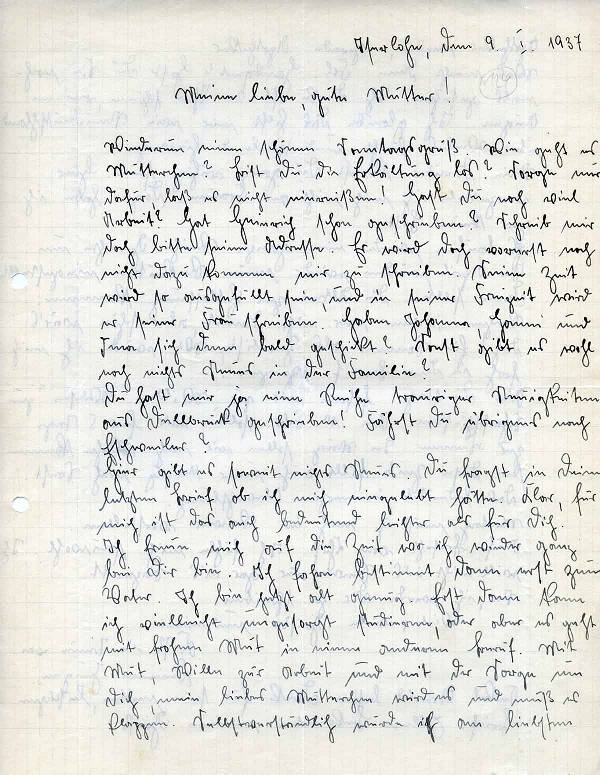 Iserlohn, den 9. I. 1937
Meine liebe, gute Mutter!
Wiederum einen schönen Sonntagsgruß. Wie geht es
Mutterchen? Bist Du die Erkältung los? Sorge nur
dafür, laß es nicht einreißen! Hast Du noch viel
Arbeit? Hat Heinrich schon geschrieben? Schreib mir
doch bitte seine Adresse. Er wird doch vorerst noch
nicht dazu kommen mir zu schreiben. Seine Zeit
wird so ausgefüllt sein, und in seiner Freizeit wird
er seiner Frau schreiben. Haben Johanna, Hanni und
Irma sich denn bald geschickt? Sonst gibt es wohl
noch nichts Neues in der Familie?
Du hast mir ja eine Reihe trauriger Neuigkeiten
aus geschrieben! Fährst Du übrigens nach
Eschweiler?
Hier gibt es soweit nichts Neues. Du fragst in Deinem
letzten Brief ob ich mich eingelebt hätte. Klar, für
mich ist das auch bedeutend leichter als für Dich.
Ich freue mich auf die Zeit wo ich wieder ganz
bei Dir bin. Ich fahre bestimmt dann erst zum
Vater. Ich bin jetzt alt genug. Erst dann kann
ich vielleicht ungesorgt studieren, oder aber es geht
mit frohem Mut in einen anderen Beruf. Mit
Mut, Willen zur Arbeit und mit der Sorge um
Dich, mein liebes Mutterchen wird es und muß es
klappen. Selbstverständlich würde ich am liebsten